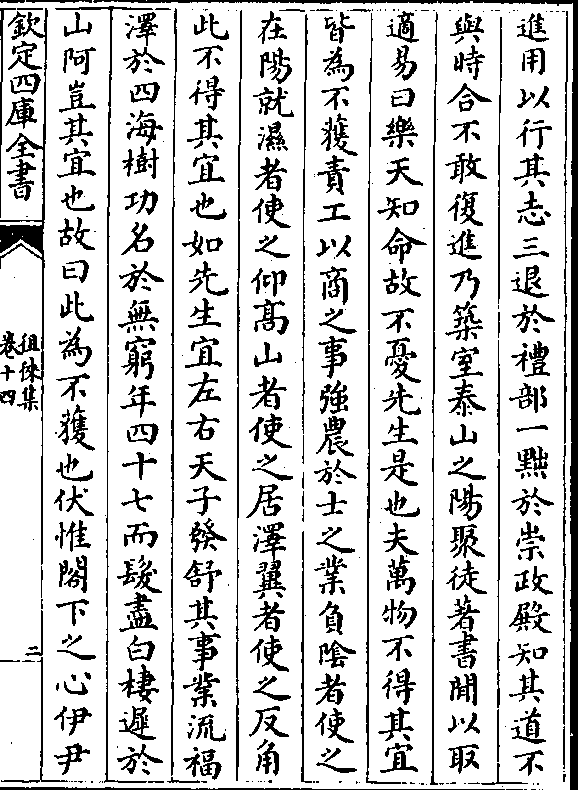 進用以行其志三退於禮部一黜於崇政殿知其道不
與時合不敢復進乃築室泰山之陽聚徒著書閒以取
適易曰樂天知命故不憂先生是也夫萬物不得其宜
皆為不獲責工以商之事強農於士之業負陰者使之
在陽就濕者使之仰髙山者使之居澤翼者使之反角
此不得其宜也如先生宜左右天子發舒其事業流福
澤於四海樹功名於無窮年四十七而髮盡白棲遲於
山阿豈其宜也故曰此為不獲也伏惟閣下之心伊尹
欽定四庫全書
徂徠集
卷十四
二